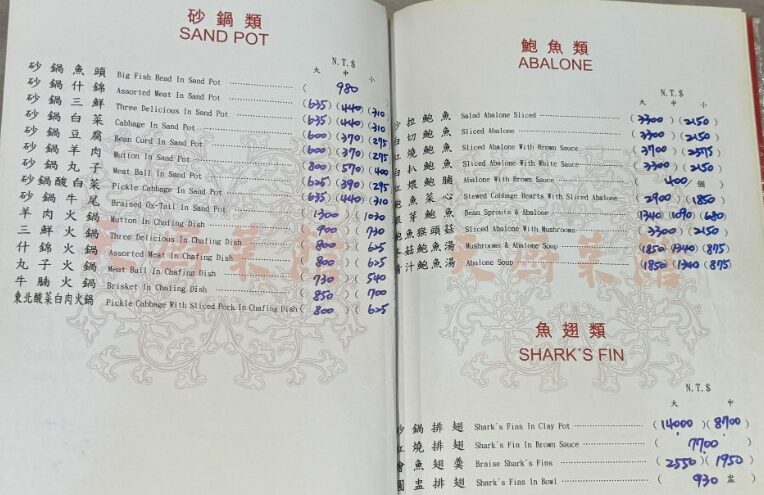 砂鍋類
SAND POT
N.T.$
大 中 小
砂鍋魚頭 Big Fish Head In Sand Pot (980)
砂鍋什錦 Assorted Meat In Sand Pot (635)(440)(310)
砂鍋三鮮 Three Delicious In Sand Pot (635)(440)(310)
砂鍋白菜 Cabbage In Sand Pot (600)(370)(275)
砂鍋豆腐 Bean Curd In Sand Pot (600)(370)(275)
砂鍋羊肉 Mutton In Sand Pot (800)(570)(400)
砂鍋丸子 Meat Ball In Sand Pot (625)(390)(295)
砂鍋酸白菜 Pickle Cabbage In Sand Pot (635)(440)(310)
砂鍋牛尾 Braised Ox-Tail In Sand Pot (1300)(1030)
羊肉火鍋 Mutton In Chafing Dish (900)(730)
三鮮火鍋 Three Delicious In Chafing Dish (800)(625)
什錦火鍋 Assorted Meat In Chafing Dish (800)(625)
丸子火鍋 Meat Ball In Chafing Dish (730)(540)
牛腩火鍋 Brisket In Chafing Dish (850)(700)
東北酸菜白肉火鍋 Pickle Cabbage With Sliced Pork In Chafing Dish (800)(625)
鮑魚類
ABALONE
N.T.$
大 中 小
沙拉鮑魚 Salad Abalone Sliced (3300)(2150)
白切鮑魚 Sliced Abalone (3300)(2150)
紅燒鮑魚 Sliced Abalone With Brown Sauce (3700)(2575)
白扒鮑魚 Sliced Abalone With White Sauce (3300)(2150)
紅煨鮑脯 Abalone With Brown Sauce (400個)
鮑魚菜心 Stewed Cabbage Hearts With Sliced Abalone (2900)(1850)
銀芽鮑魚 Bean Sprouts & Abalone (1340)(1090)(680)
鮑魚猴頭菇 Sliced Abalone With Mushrooms (3300)(2150)
菇鮑魚湯 Mushrooms & Abalone Soup (1850)(1340)(875)
清汁鮑魚湯 Abalone Soup (1850)(1340)(875)
魚翅類
SHARK'S FIN
N.T.$
大 中
砂鍋排翅 Shark's Fins In Clay Pot (14000)(8700)
紅燒排翅 Shark's Fin In Brown Sauce (7700)
燴魚翅羹 Braise Shark's Fins (2550)(1950)
圓盅排翅 Shark's Fins In Bowl (930盅)